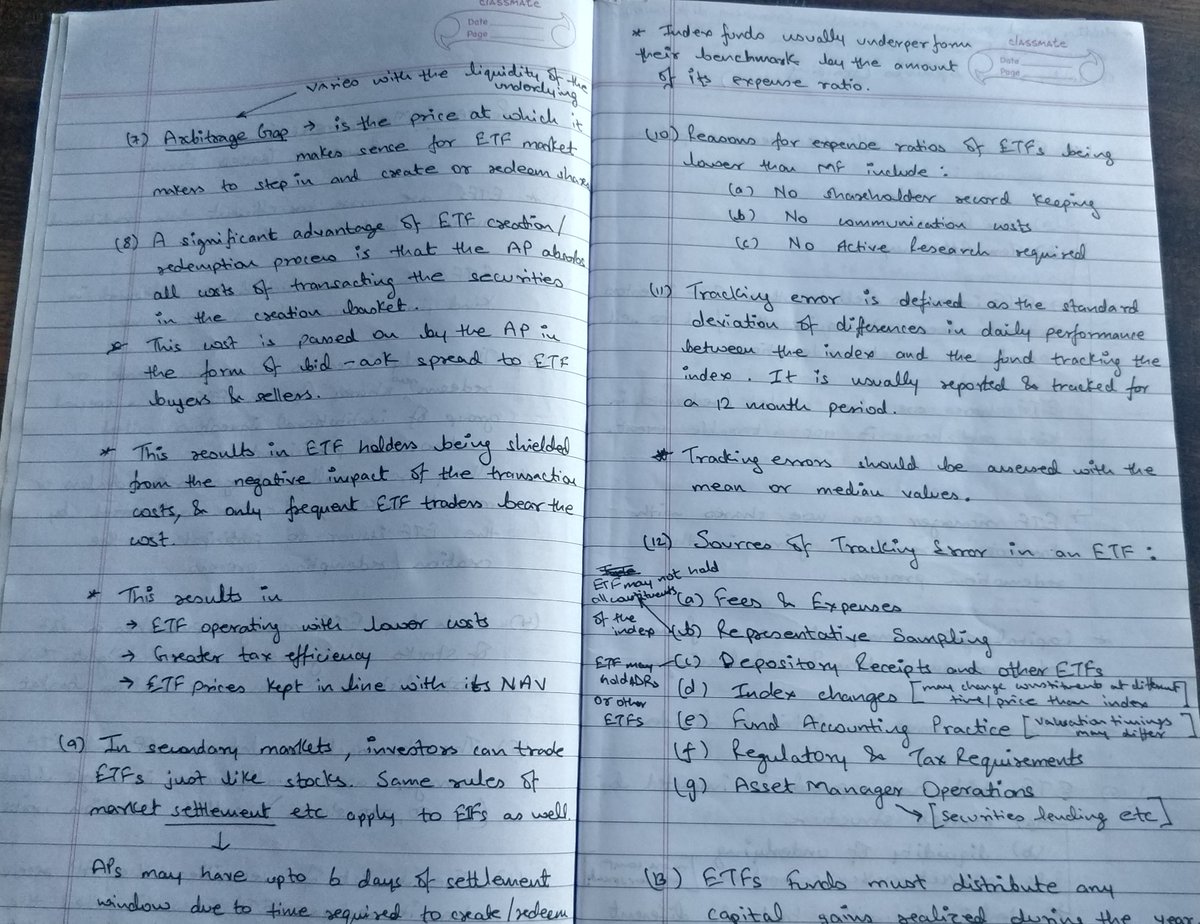 classmate
Date
Page
varies with the liquidity of the
underlying
(7) Arbitrage Gap → is the price at which it
makes sence for ETF market
makers to step in and create or redeem shares
(8) A significant advantage of ETF creation/
redemption process is that the AP absorbs
all costs of transacting the securities
in the creation basket.
* This cost is passed on by the AP in
the form of bid-ask spread to ETF
buyers & sellers.
* This results in ETF holders being shielded
from the negative impact of the transaction
costs, & only frequent ETF traders bear the
cost.
* This results in
→ ETF operating with lower costs
→ Greater tax efficiency
→ ETF prices kept in line with its NAV
(9) In secondary markets, investors can trade
ETFs just like stocks. Same rules of
market settlement etc apply to ETFs as well
↓
APs may have upto 6 days of settlement
window due to time required to create/redeem
classmate
Date
Page
* Index funds usually underperform
their benchmark by the amount
of its expense ratio.
(10) Reasons for expense ratios of ETFs being
lower than MF include:
(a) No shareholder record keeping
(b) No communication costs
(c) No Active Research required
(11) Tracking error is defined as the standard
deviation of differences in daily performance
between the index and the fund tracking the
index. It is usually reported & tracked for
a 12 month period.
* Tracking errors should be assessed with the
mean or median values.
(12) Sources of Tracking Error in an ETF:
(a) Fees & Expenses
ETF may not hold
all constituents
of the
index
(b) Representative Sampling
ETF may
hold ADRs
or other
ETFs
(c) Depository Receipts and other ETFs
(d) Index changes [may change constituents at different
time/price than index]
(e) Fund Accounting Practice [valuation timings
may differ]
(f) Regulatory & Tax Requirements
(g) Asset Manager Operations
→ [securities lending etc]
(13) ETFs funds must distribute any
capital gains realized during the year